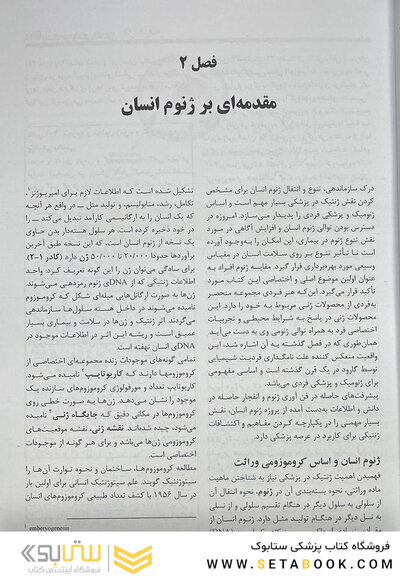 فصل ۲
مقدمه‌ای بر ژنوم انسان
درک سازماندهی، تنوع و انتقال ژنوم انسان برای مشخص
کردن نقش ژنتیک در پزشکی بسیار مهم است و اساس
ژنومیک و پزشکی فردی را پدیدار می‌سازد. امروزه در
دسترس بودن توالی ژنوم انسان و افزایش آگاهی در مورد
نقش تنوع ژنوم در بیماری، این امکان را به‌وجود آورده
است تا تأثیر تنوع بر روی سلامت انسان در مقیاس
وسیعی مورد بهره‌برداری قرار گیرد. مقایسه ژنوم افراد به
عنوان اولین موضوع اصلی و اختصاصی این کتاب مورد
تأکید قرار می‌گیرد. این‌که هر فردی مجموعه منحصر
به‌فردی از محصولات ژنی مربوط به خود را دارد. این
محصولات ژنی در پاسخ به شرایط محیطی و تجربیات
اختصاصی فرد به همراه توالی ژنومی وی به دست می‌آید.
همان‌طوری که در فصل گذشته به آن اشاره شد، این
واقعیت منعکس کننده علت نامگذاری فردیت شیمیایی
توسط گارود در یک قرن گذشته است و اساس مفهومی
برای ژنومیک و پزشکی فردی می‌باشد.
پیشرفت‌های حاصله در فن آوری ژنوم و انفجار حاصله در
دانش و اطلاعات به‌دست آمده از پروژه ژنوم انسان، نقش
بسیار مهمی را در یکپارچه کردن مفاهیم و اکتشافات
ژنتیکی برای کاربرد در عرصه پزشکی دارد.
ژنوم انسان و اساس کروموزومی وراثت
فهمیدن اهمیت ژنتیک در پزشکی نیاز به شناختن ماهیت
ماده وراثتی، نحوه بسته‌بندی آن در ژنوم، نحوه انتقال آن
از سلولی به سلول دیگر در هنگام تقسیم سلولی و از نسلی
به نسل دیگر در هنگام تولید مثل دارد. ژنوم انسان از
تشکیل شده است که اطلاعات لازم برای امبریوژنز۱،
تکامل، رشد، متابولیسم، و تولید مثل ــ در واقع هر آنچه
که یک انسان را به ارگانیسمی کارآمد تبدیل می‌کند ــ را
در خود ذخیره کرده است. هر سلول هسته‌دار بدن حاوی
یک نسخه از ژنوم انسان است، که این نسخه طبق آخرین
برآوردها حدودا ۲۰/۰۰۰ تا ۵۰/۰۰۰ ژن دارد (کادر ۱-۲).
برای سادگی می‌توان ژن را این گونه تعریف کرد: واحد
اطلاعات ژنتیکی که از DNAی ژنوم رمزدهی می‌شوند.
ژن‌ها به صورت ارگانل‌هایی میله‌ای شکل که کروموزوم
نامیده می‌شوند، در داخل هسته سلول‌ها سازماندهی
می‌گردند. اثر ژنتیک و ژن‌ها در سلامت و بیماری بسیار
عمیق است و ریشه این اثر در اطلاعات موجود در
DNAی انسان نهفته است.
تمامی گونه‌های موجودات زنده مجموعه‌ای اختصاصی از
کروموزوم‌ها دارند که کاریوتایپ۲ نامیده می‌شود.
کاریوتایپ تعداد و مورفولوژی کروموزوم‌های سازنده یک
موجود را نشان می‌دهد. ژن‌ها به صورت خطی روی
کروموزوم‌ها در مکانی دقیق که جایگاه ژنی۳ نامیده
می‌شود، چیده شده‌اند. نقشه ژنی، نقشه موقعیت‌های
کروموزومی ژن‌ها می‌باشد و برای هر گونه از موجودات
اختصاصی است.
مطالعه کروموزوم‌ها، ساختمان و نحوه توارث آن‌ها را
سیتوژنتیک گویند. علم سیتوژنتیک انسانی برای اولین بار
در سال ۱۹۵۶ با کشف تعداد طبیعی کروموزوم‌های انسان
1 embryogenesis
ستابوک
فروشگاه اینترنتی کتاب
فروشگاه کتاب پزشکی ستابوک
WWW.SETABOOK.COM